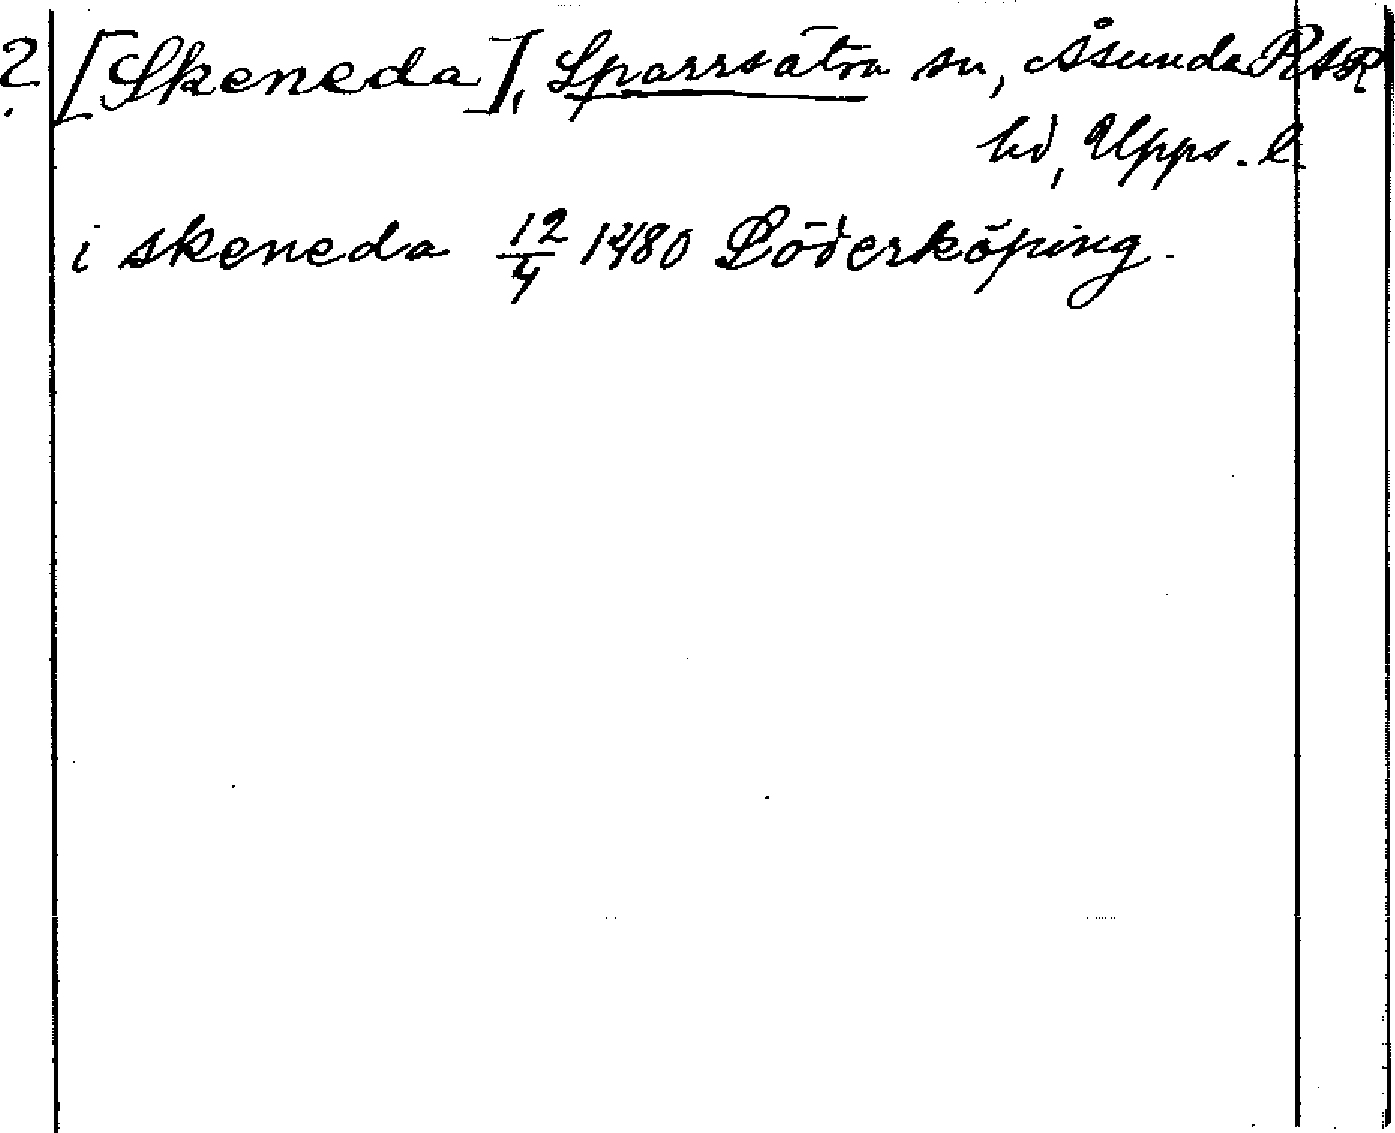 ? [Skeneda], Sparrsätra sn, Åsunda RAR
hd, Upps. l.
i skeneda 12/4 1480 Söderköping.